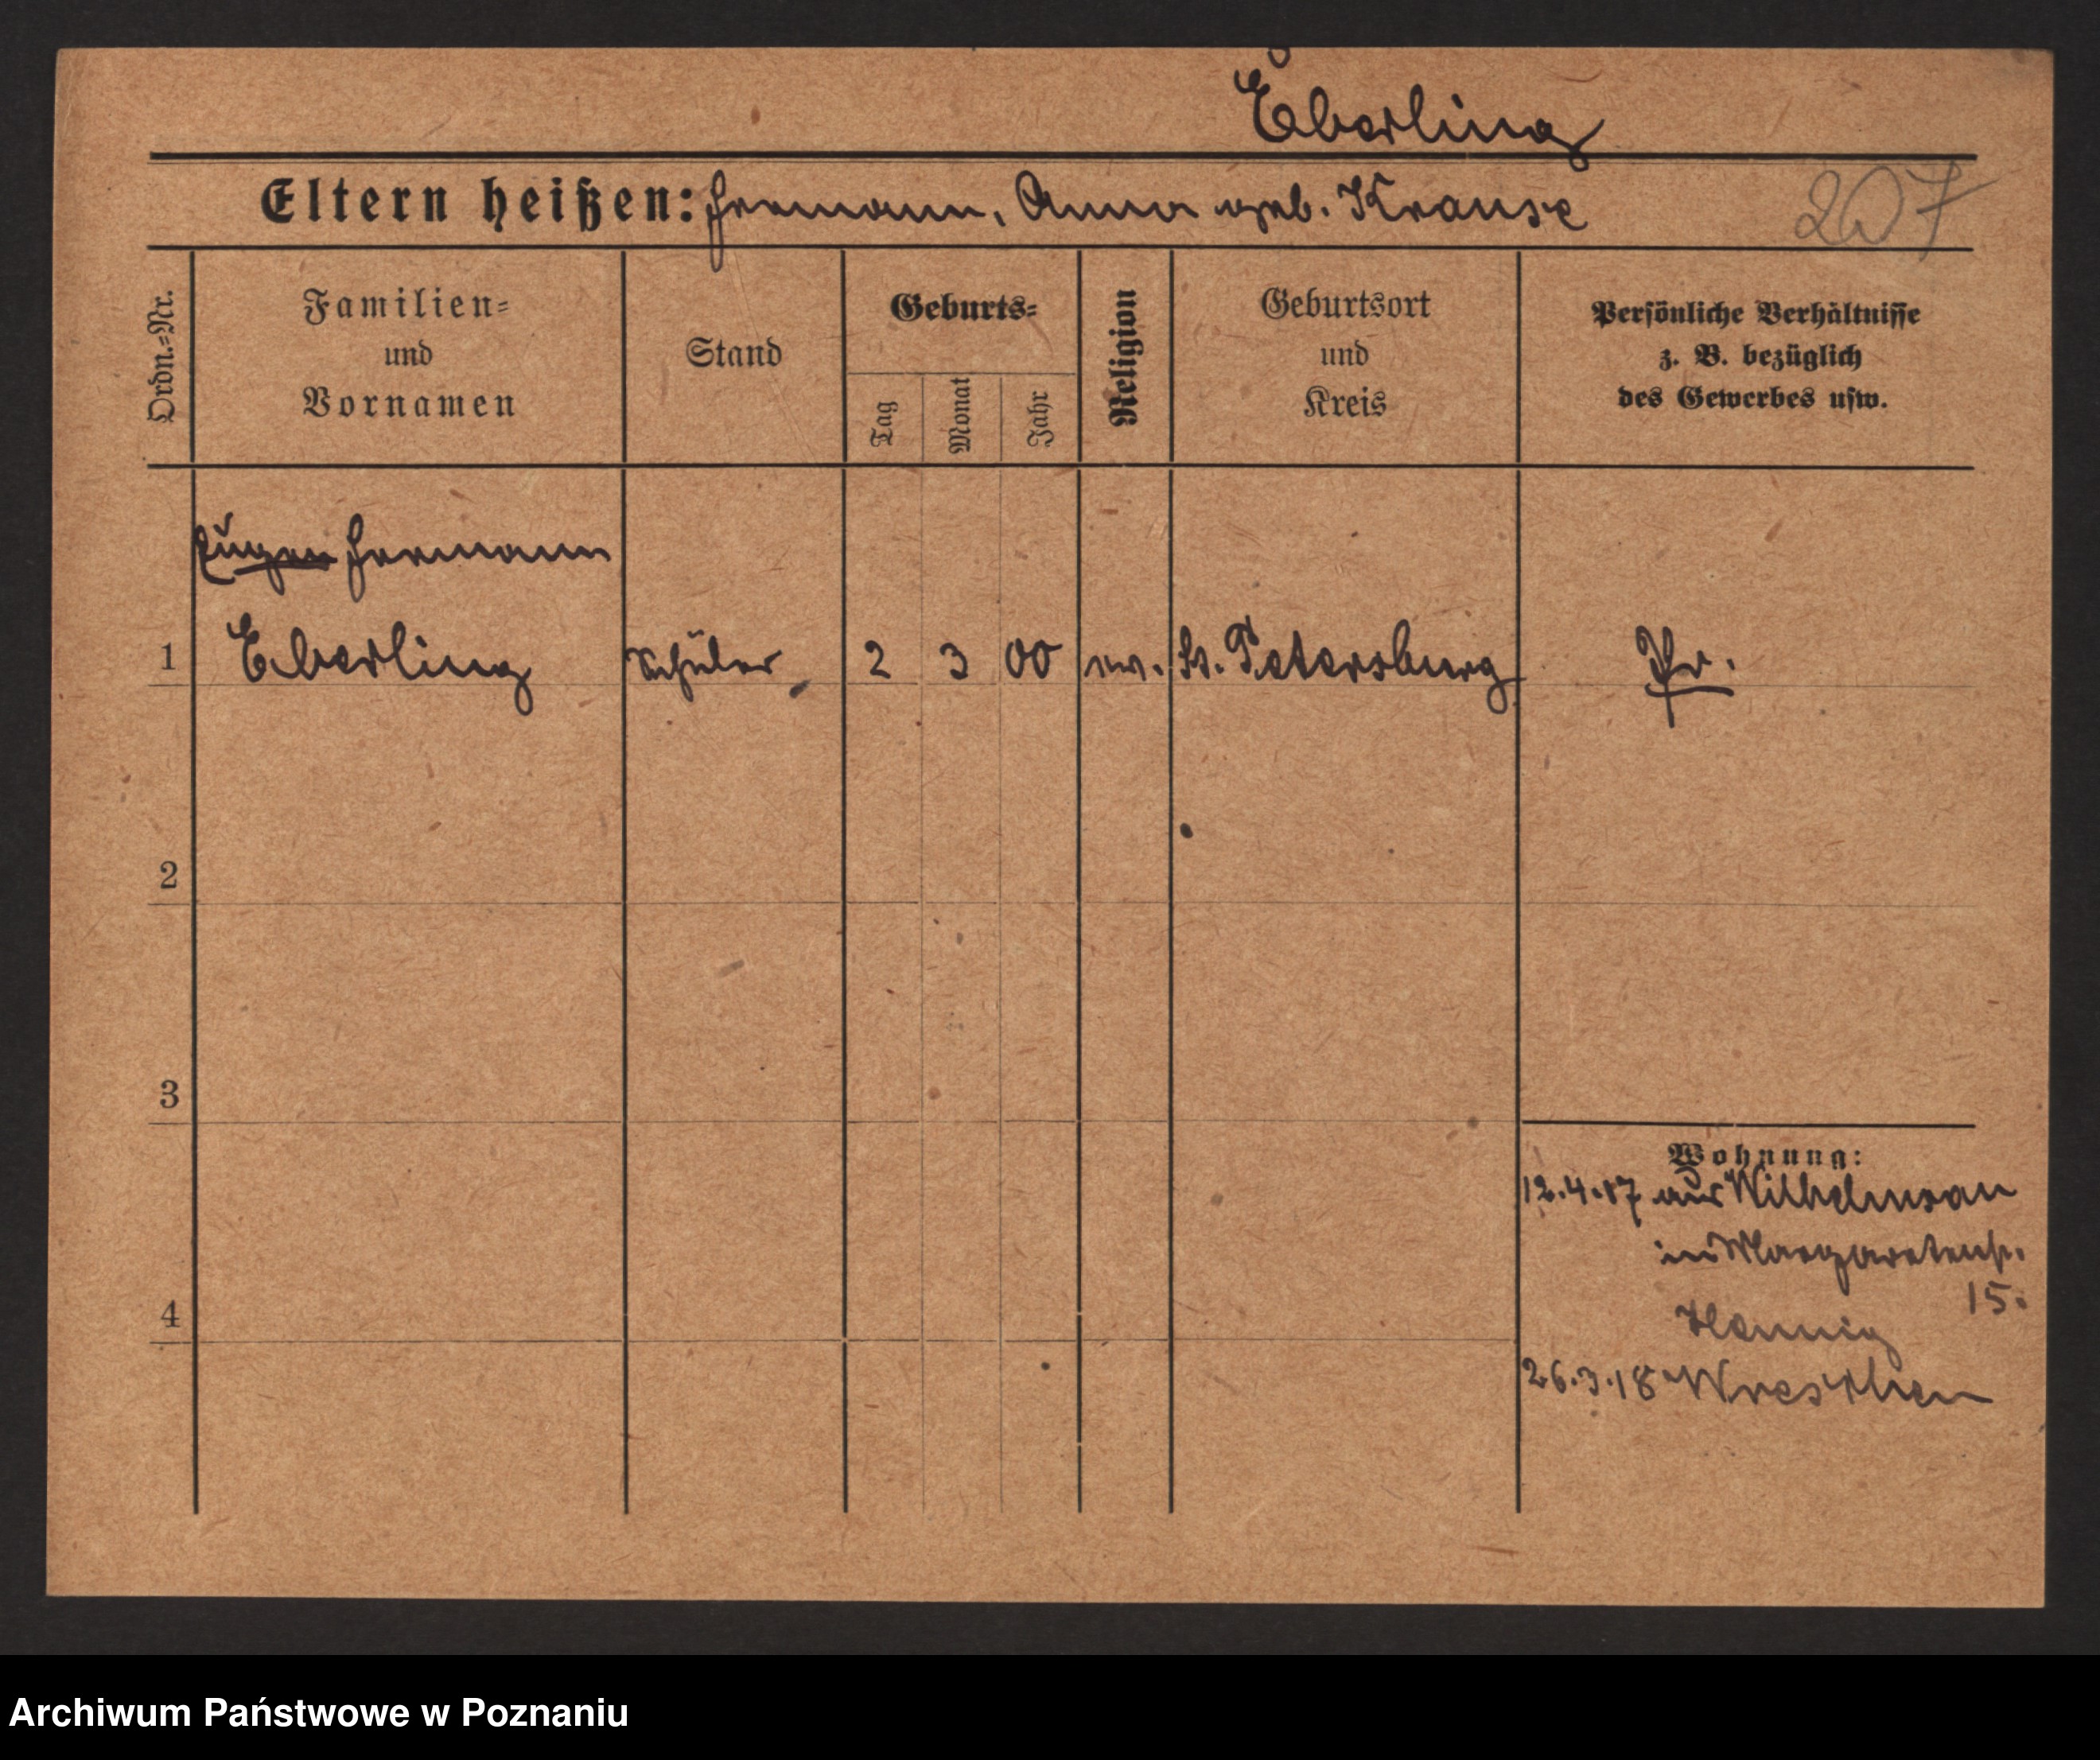 Eberling
Eltern heißen: Hermann, Anna geb. Krause
207
Ordn.=Nr.
Familien=
und
Vornamen
Stand
Geburts=
Tag
Monat
Jahr
Religion
Geburtsort
und
Kreis
Persönliche Verhältnisse
z. B. bezüglich
des Gewerbes usw.
Eugen Hermann
1 Eberling Schüler 2 3 00 ev. St. Petersburg Pr.
2
3
4
Wohnung:
12.4.17 aus Wilhelmsau
in Margaretenstr.
15.
Hennig
26.3.18 Wreschen
Archiwum Państwowe w Poznaniu